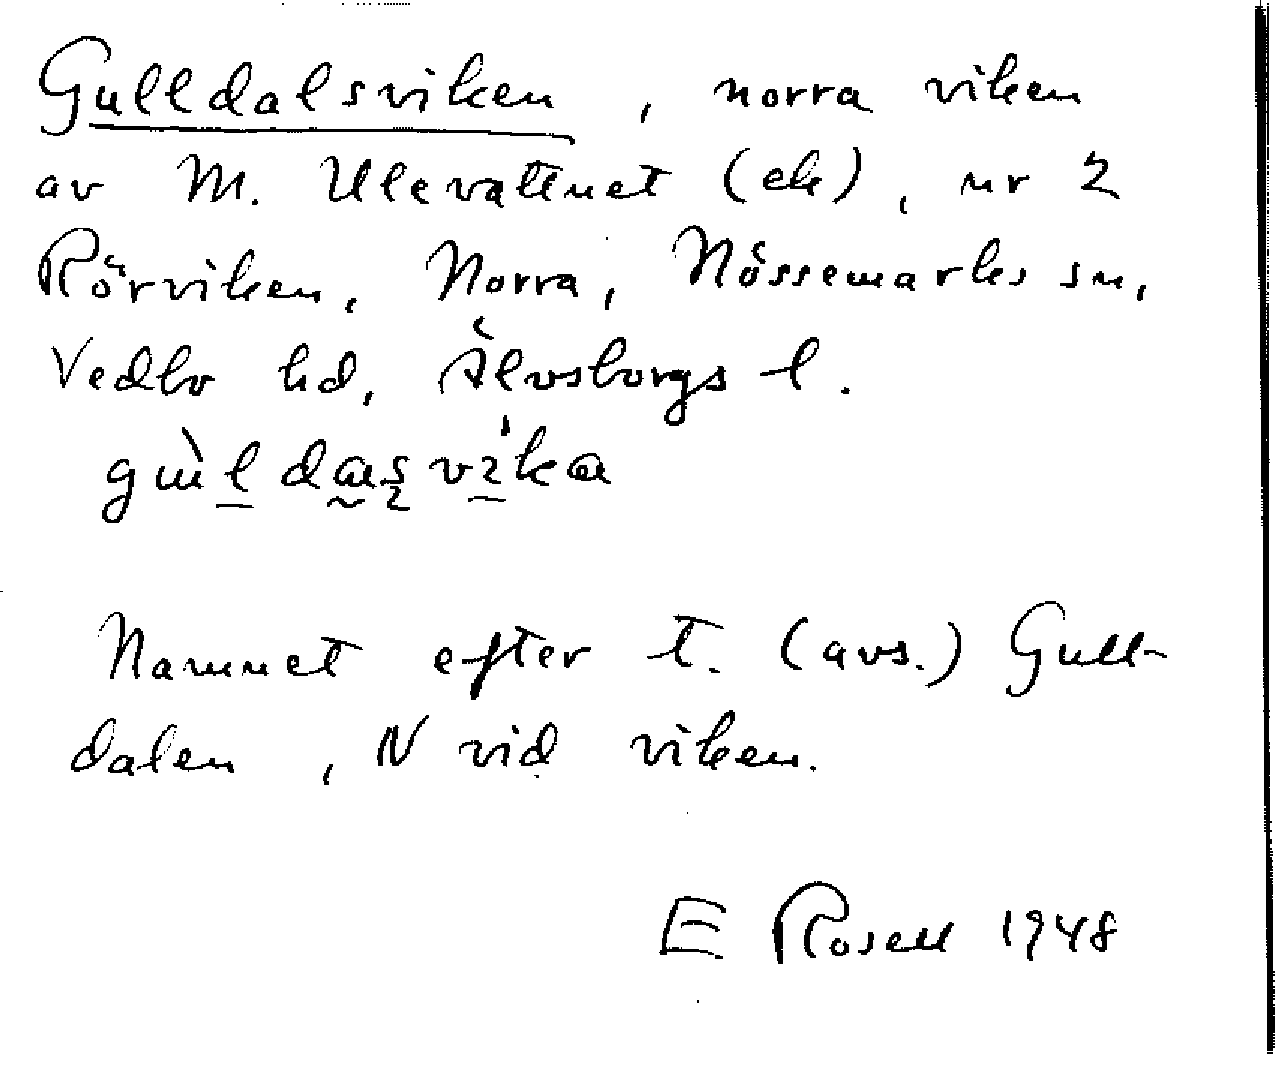 Gulldalsviken, norra viken
av M. Ulevattnet (ek), nr 2
Rörviken, Norra, Nössemarks sn,
Vedbo hd, Älvsborgs l.
Namnet efter t. (avs.) Gull-
dalen, N vid viken.
E Rosell 1948